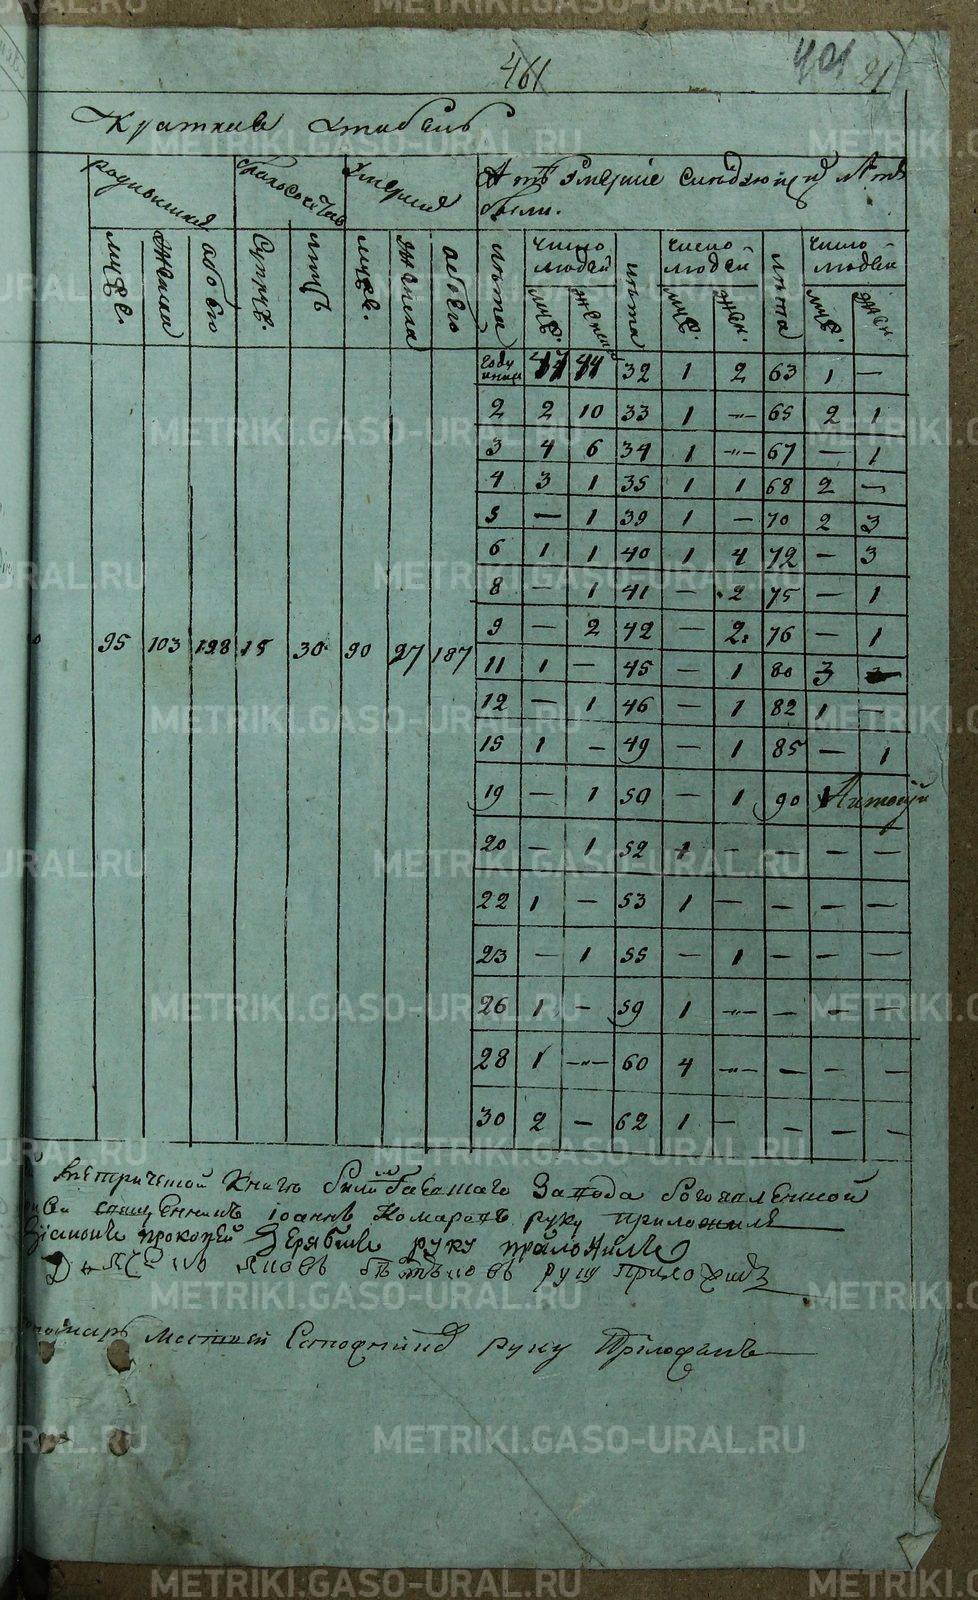 461 401 21
Краткая Табель
родившихся умершие А тѣ умершие следующихъ лѣтъ
были.
число число число
людей людей людей
муж. женска обоего супруж. муж. женска обоего лѣта лѣта лѣта
муж. женска муж. жен. муж. жен.
году 32 1 2 63 1 —
2 2 10 33 1 — 65 2 1
3 4 6 34 1 — 67 — 1
4 3 1 35 1 1 68 2 —
5 — 1 39 1 — 70 2 3
6 1 1 40 1 4 72 — 3
8 — 1 41 — 2 75 — 1
9 — 2 42 — 2 76 — 1
95 103 198 15 30 90 97 187
11 1 — 45 — 1 80 3
12 — 1 46 — 1 82 1 —
15 1 — 49 — 1 85 — 1
19 — 1 50 — 1 90 1
20 — 1 52 1 — — — —
22 1 — 53 1 — — — —
23 — 1 55 — 1 — — —
26 1 — 59 1 — — — —
28 1 — 60 4 — — — —
30 2 — 62 1 — — — —
метрической книгѣ завода богоявленской
священникъ иоаннъ Комаровъ руку приложилъ
прокопей руку приложилъ
руку приложилъ
руку приложилъ
METRIKI.GASO-URAL.RU